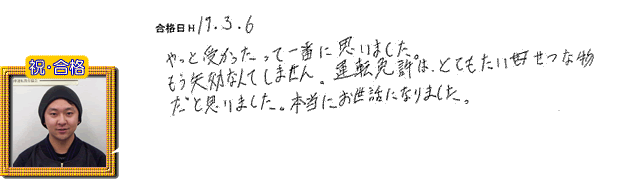 合格日H19.3.6
祝・合格
やっと受かったって一番に思いました。
もう失効なんてしません。運転免許は、とてもたいせつな物
だと思いました。本当にお世話になりました。